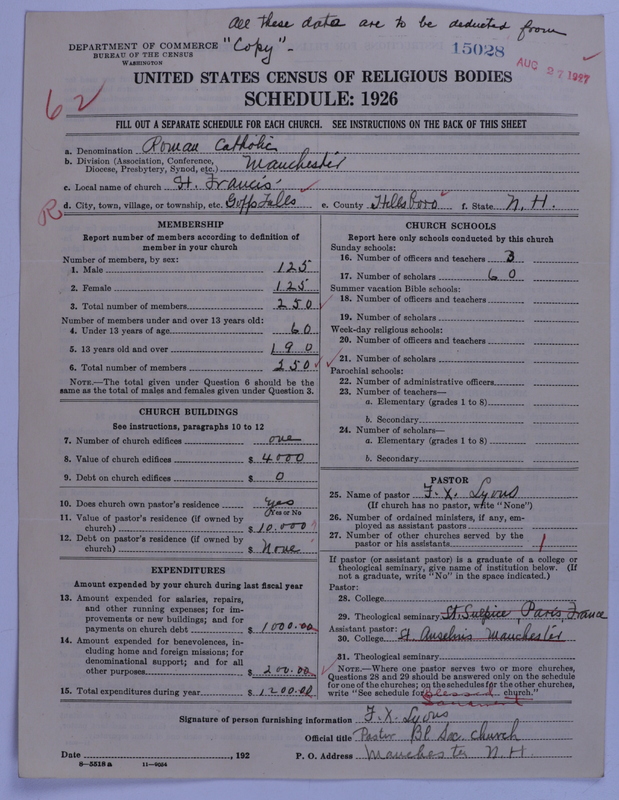 All these data are to be deducted from
DEPARTMENT OF COMMERCE "Copy"-
BUREAU OF THE CENSUS
WASHINGTON
15028
AUG 27 1927
UNITED STATES CENSUS OF RELIGIOUS BODIES
SCHEDULE: 1926
62
FILL OUT A SEPARATE SCHEDULE FOR EACH CHURCH. SEE INSTRUCTIONS ON THE BACK OF THIS SHEET
a. Denomination Roman Catholic
b. Division (Association, Conference, Diocese, Presbytery, Synod, etc.) Manchester
c. Local name of church St. Francis
R
d. City, town, village, or township, etc. Goffs Falls e. County Hillsboro f. State N. H.
MEMBERSHIP
Report number of members according to definition of
member in your church
Number of members, by sex:
1. Male 125
2. Female 125
3. Total number of members 250
Number of members under and over 13 years old:
4. Under 13 years of age 60
5. 13 years old and over 190
6. Total number of members 250
NOTE.—The total given under Question 6 should be the
same as the total of males and females given under Question 3.
CHURCH BUILDINGS
See instructions, paragraphs 10 to 12
7. Number of church edifices one
8. Value of church edifices $ 4000
9. Debt on church edifices $ 0
10. Does church own pastor's residence yes
Yes or No
11. Value of pastor's residence (if owned by
church) $ 10.000 ?
12. Debt on pastor's residence (if owned by
church) $ None
EXPENDITURES
Amount expended by your church during last fiscal year
13. Amount expended for salaries, repairs,
and other running expenses; for im-
provements or new buildings; and for
payments on church debt $ 1000.00
14. Amount expended for benevolences, in-
cluding home and foreign missions; for
denominational support; and for all
other purposes $ 200.00
15. Total expenditures during year $ 1200.00
CHURCH SCHOOLS
Report here only schools conducted by this church
Sunday schools:
16. Number of officers and teachers 3
17. Number of scholars 60
Summer vacation Bible schools:
18. Number of officers and teachers
19. Number of scholars
Week-day religious schools:
20. Number of officers and teachers
21. Number of scholars
Parochial schools:
22. Number of administrative officers
23. Number of teachers—
a. Elementary (grades 1 to 8)
b. Secondary
24. Number of scholars—
a. Elementary (grades 1 to 8)
b. Secondary
PASTOR
25. Name of pastor F. X. Lyons
(If church has no pastor, write "None")
26. Number of ordained ministers, if any, em-
ployed as assistant pastors
27. Number of other churches served by the
pastor or his assistants 1
If pastor (or assistant pastor) is a graduate of a college or
theological seminary, give name of institution below. (If
not a graduate, write "No" in the space indicated.)
Pastor:
28. College
29. Theological seminary St. Sulpice, Paris, France
Assistant pastor:
30. College St. Anselm's Manchester
31. Theological seminary
NOTE.—Where one pastor serves two or more churches,
Questions 28 and 29 should be answered only on the schedule
for one of the churches; on the schedules for the other churches,
write "See schedule for Blessed church."
Sacrament
Signature of person furnishing information F. X. Lyons
Official title Pastor Bl Sac. church
Date , 192 P. O. Address Manchester N. H.
8—5518 a 11—9024